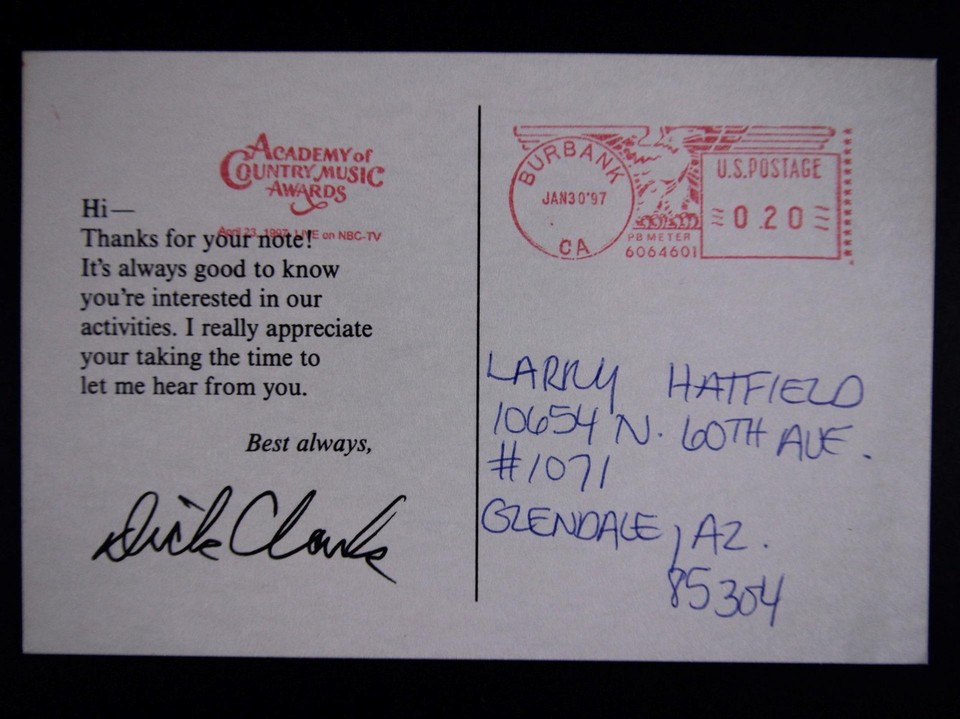 ACADEMY of
COUNTRY MUSIC
AWARDS
April 23, 1997 LIVE on NBC-TV
Hi—
Thanks for your note!
It's always good to know
you're interested in our
activities. I really appreciate
your taking the time to
let me hear from you.
Best always,
Dick Clark
BURBANK
JAN30'97
CA
PB METER
6064601
U.S. POSTAGE
0.20
LARRY HATFIELD
10654 N. 60TH AVE.
#1071
GLENDALE, AZ.
85304